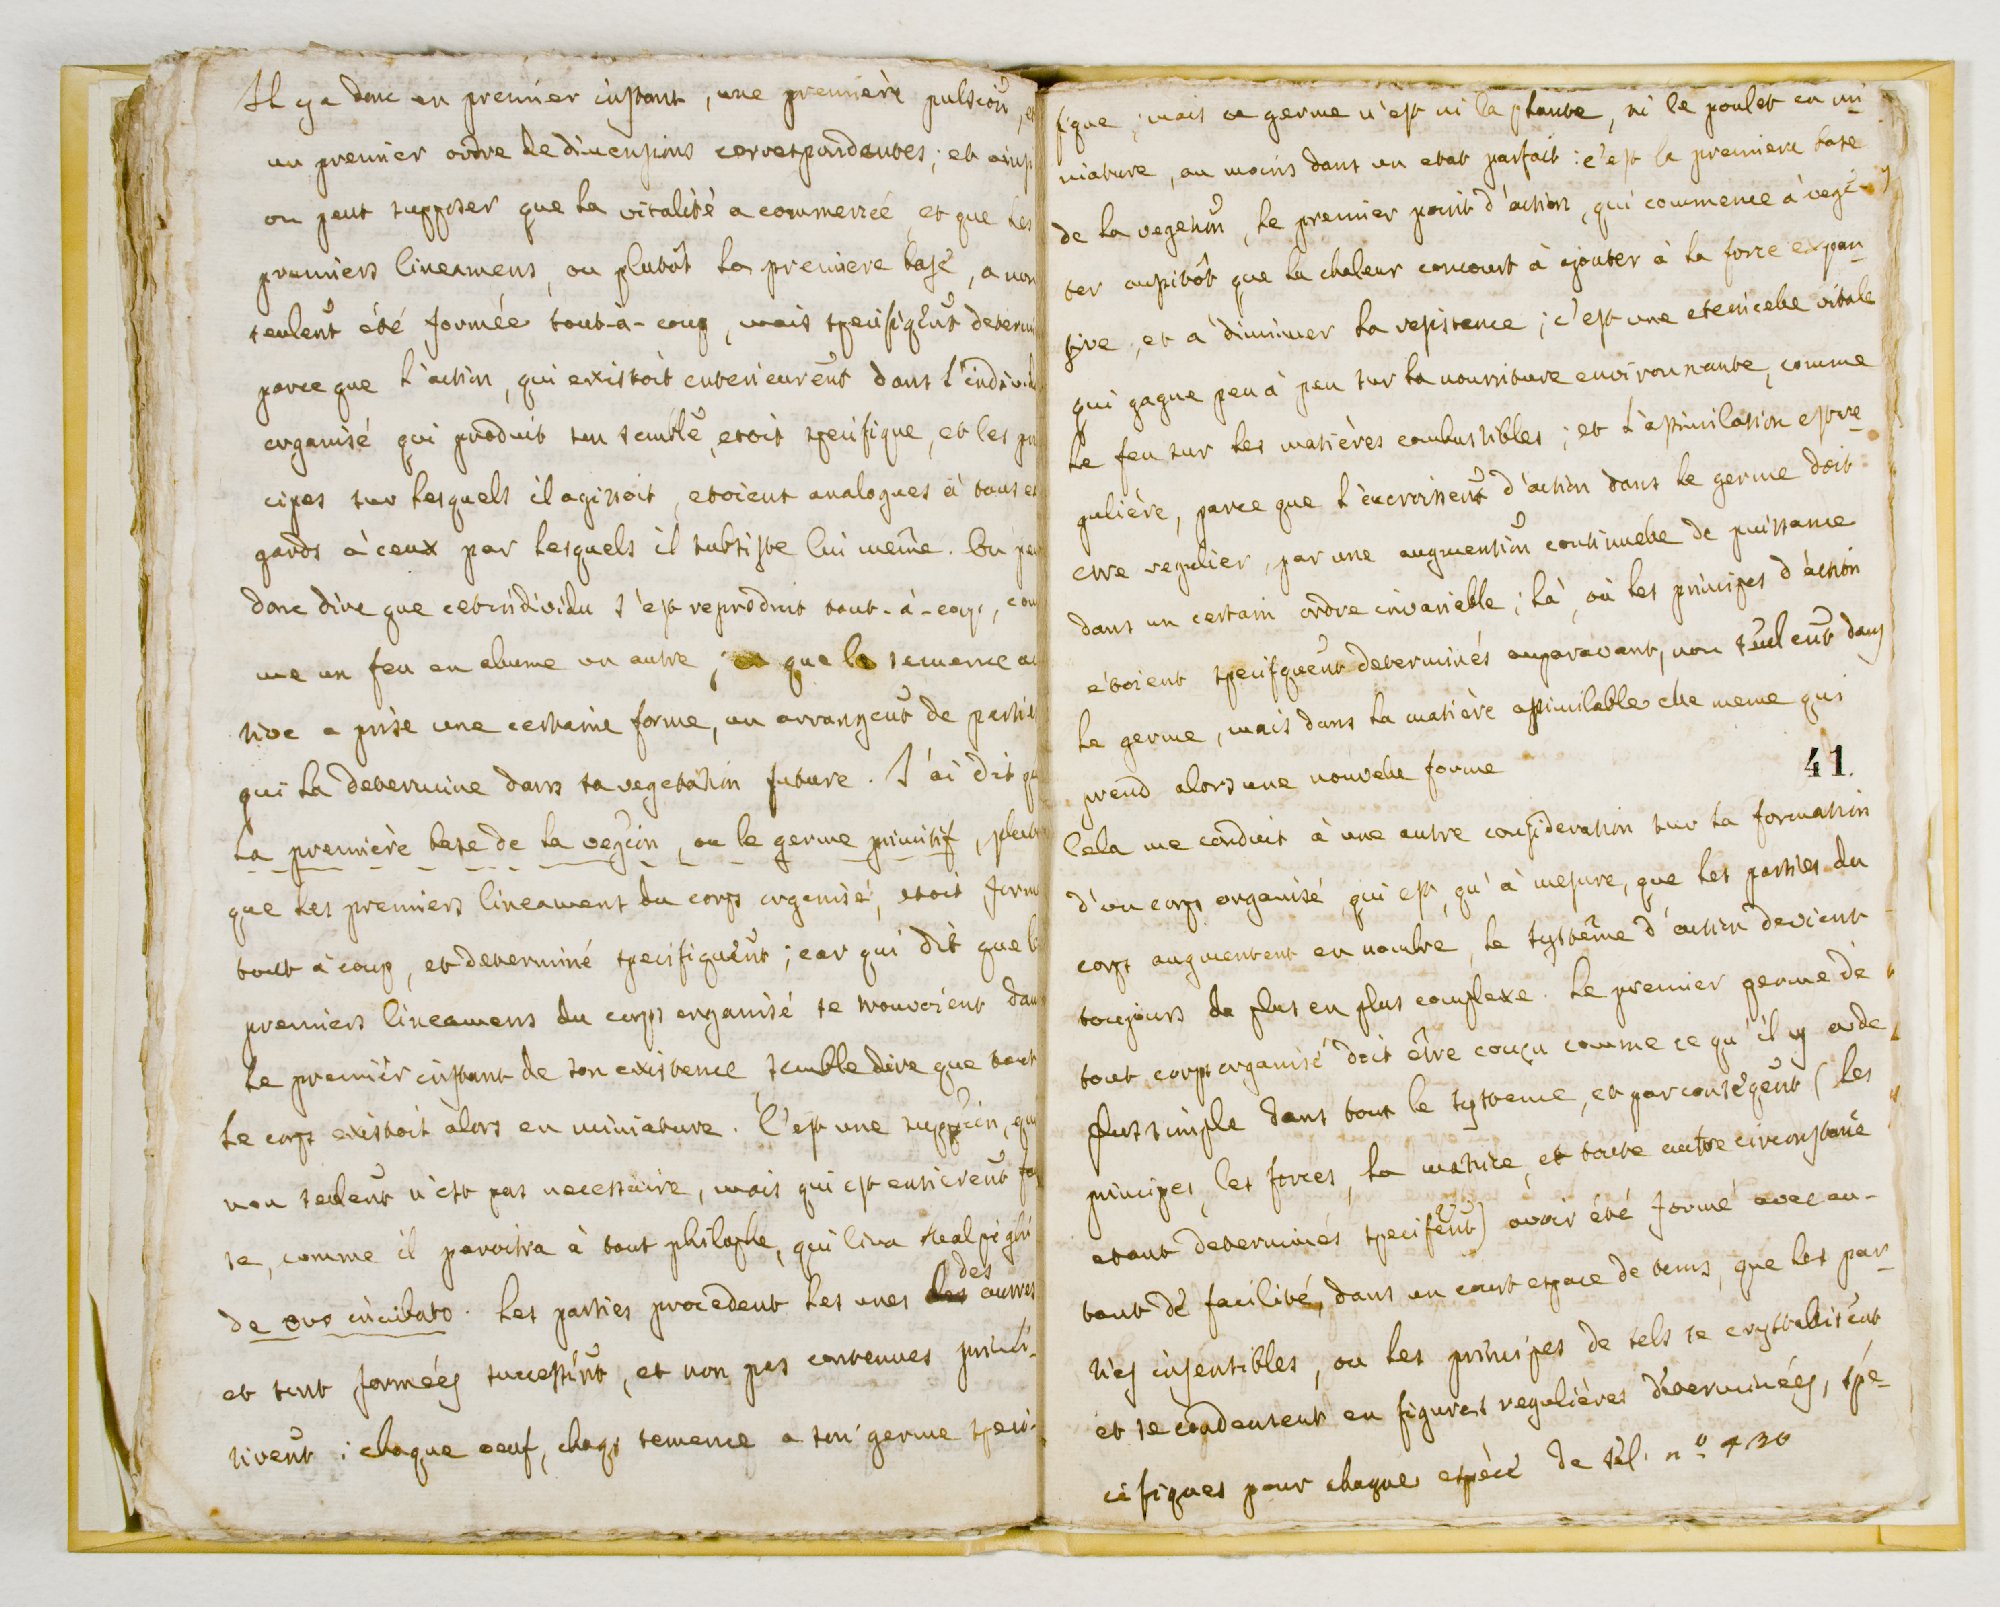 Il y a donc un premier instant, une premierè pulsion, et
un premier ordre de dimensions correspondantes; et ainsi
on peut supposer que la vitalité a commencé, et que les
premiers lineamens, ou plutôt la premiere base, a non
seulem̃t été formée tout-à-coup, mais specifiqm̃t determi
parce que l'action, qui existoit enterieurem̃t dans l'individu
organisé qui produit son semblẽ, etoit specifique, et les prin
cipes sur lesquels il agissoit, etoient analogues à tous e
gards à ceux par lesquels il subsiste lui même. On peu
donc dire que cet individu s'est reproduit tout-à-coup, com
me un feu en alume un autre; que la semence ac
tive a prise une certaine forme, un arrangem̃t de parties
qui la determine dans sa vegetation future. J'ai dit que
la première base de la veg̃ion, ou le germe primitif, plutot
que les premiers lineament du corps organisé, etoit formé
tout à coup, et determiné specifiquem̃t; car qui dit que les
premiers lineamens du corps organisé se trouvoient dans
le premièr instant de son existence semble dire que tout
le corps existoit alors en miniature. C'est une supp̃ion, que
non seulem̃t n'est pas necessaire, mais qui est entierem̃t faus
se, comme il paroitra à tout philosphe, qui lira Malpighi
de ovo incubato. Les parties procedent les unes des autres
et sont formées successivm̃t, et non pas contenues primi-
tivem̃t: chaque oeuf, chaqe semence a son germe speci-
fique; mais ce germe n'est ni la plante, ni le poulet en mi-
niature, au moins dans un etat parfait: c'est la premiere base
de la vegetiõn, le premier point d'action, qui commence à vegé-
ter aussitôt que la chaleur concourt à ajouter à la force expan-
sive, et à diminuer la resistence; c'est une etenicelle vitale
qui gagne peu à peu sur la nourriture environnante, comme
le feu sur les matières combustibles; et l'assimilation est re-
gulière, parce que l'accroissem̃t d'action dans le germe doit
etre regulier, par une augmentiõn continuelle de puissance
dans un certain ordre invariable; là, où les principes d'action
étoient specifiquem̃t determinés auparavant, non seulem̃t dans
le germe, mais dans la matière assimilable elle meme qui
prend alors une nouvelle forme
41.
Cela me conduit à une autre consideration sur la formation
d'un corps organisé, qui est, qu'à mesure, que les parties du
corps augmentent en nombre, le système d'action devient
toujours de plus en plus complexe. Le premier germe de
tout corps organisé doit être conçu comme ce qu'il y a de
plus simple dans tout le systeme, et par conseqm̃t (les
principes, les forces, la matrice, et toute autre circonstance
etant determinés specifem̃t) avoir été formé avec au-
tant de facilité, dans un court espace de tems, que les par-
ties insensibles, ou les principes de sels se crystallisent
et se condensent en figures regulières déterminées, spé-
cifiques pour chaque espèce de sel. nº 430